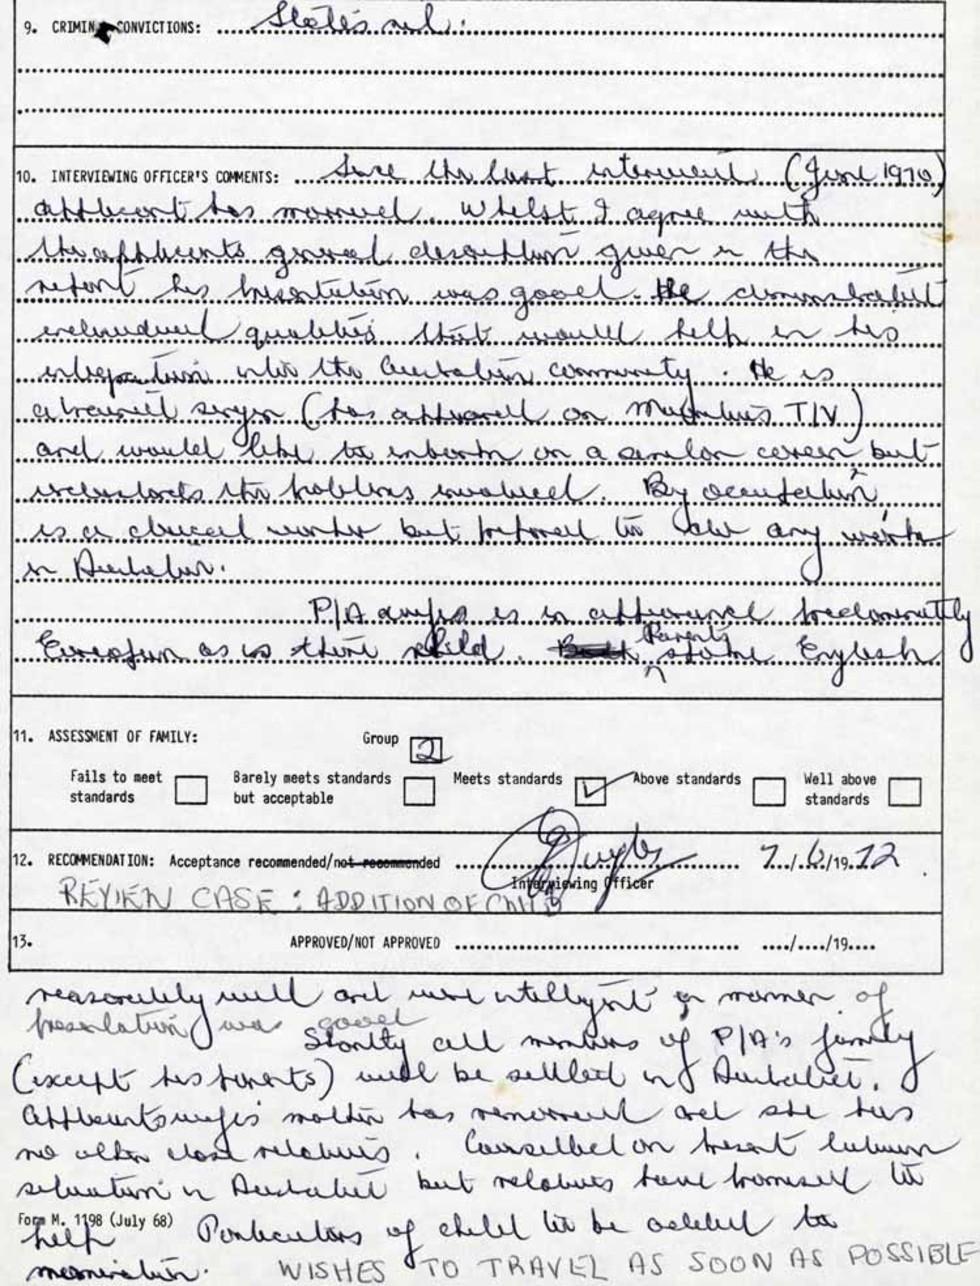 9. CRIMINAL CONVICTIONS: States nil.
10. INTERVIEWING OFFICER'S COMMENTS: Since the last interview (June 1970)
applicant has married. Whilst I agree with
the applicants general description given in the
report his presentation was good. He demonstrated
individual qualities that would help in his
integration into the Australian community. He is
a trained singer (has appeared on Mauritius T/V)
and would like to embark on a similar career but
understands the problems involved. By occupation
is a clerical worker but prepared to do any work
in Australia.
P/A & wife is in appearance predominately
European as is their child. Both Parents spoke English
11. ASSESSMENT OF FAMILY: Group 2
Fails to meet standards Barely meets standards but acceptable Meets standards Above standards Well above standards
12. RECOMMENDATION: Acceptance recommended/not recommended 7/6/1972
Interviewing Officer
REVIEW CASE: ADDITION OF CHILD
13. APPROVED/NOT APPROVED ..../..../19....
reasonably well and were intelligent & manner of
presentation was good
Shortly all members of P/A's family
(except his parents) will be settled in Australia.
Applicants wife's mother has remarried and she has
no other close relatives. Counselled on present labour
situation in Australia but relatives have promised to
Form M. 1198 (July 68)
help Particulars of child to be added to
nomination. WISHES TO TRAVEL AS SOON AS POSSIBLE